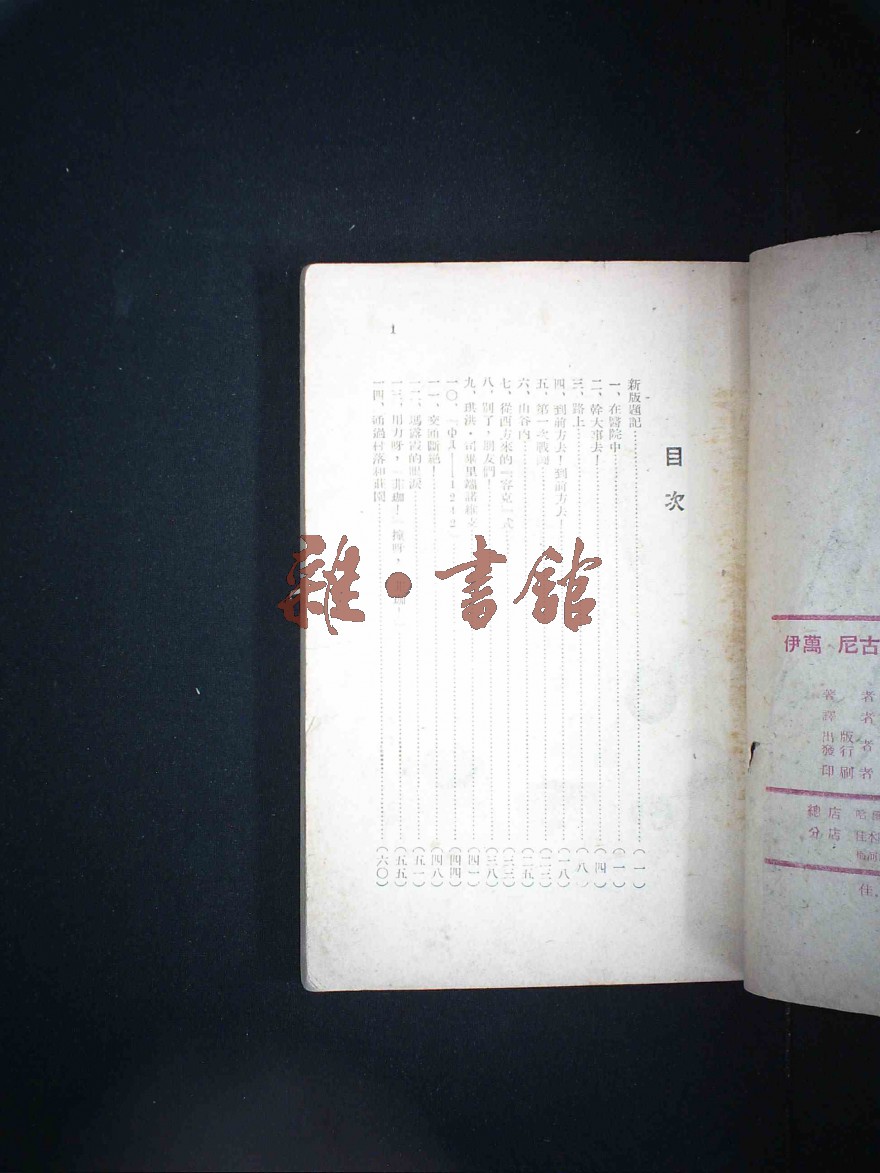 伊萬 尼古
著者
譯者
出版
發行者
印刷者
總店
分店 佳木
佳
目次
新版題記……(一)
一、在醫院中……(一)
二、幹大事去！……(四)
三、路上……(八)
四、到前方去！到前方去！……(一八)
五、第一次戰鬥……(二三)
六、山谷內……(二五)
七、從西方來的「容克」式……(三三)
八、別了，朋友們！……(三八)
九、洪……(四一)
一〇、……1242」……(四四)
一一、交通斷絕！……(四八)
一二、瑪露霞的眼淚……(五一)
一三、用力呀，「非珈！」撞呀，……(五五)
一四、通過村落和莊園……(六〇)
1
雜·書館